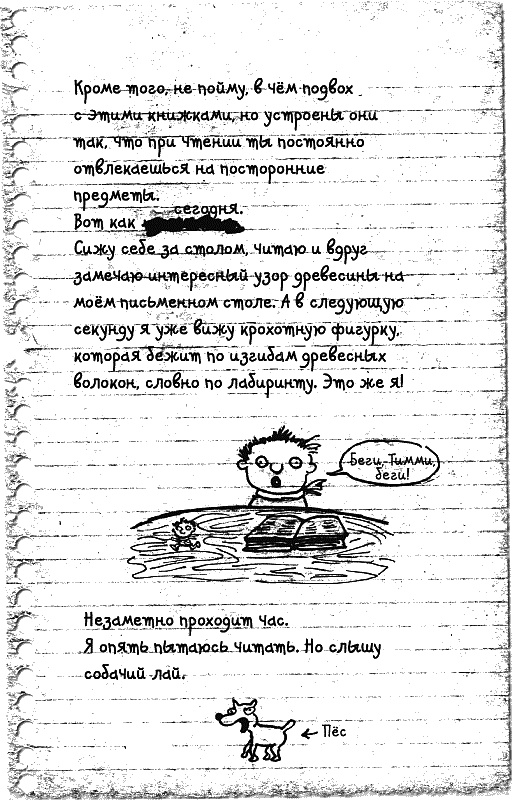 Кроме того, не пойму, в чём подвох
с этими книжками, но устроены они
так, что при чтении ты постоянно
отвлекаешься на посторонние
предметы.
сегодня.
Вот как
Сижу себе за столом, читаю и вдруг
замечаю интересный узор древесины на
моём письменном столе. А в следующую
секунду я уже вижу крохотную фигурку,
которая бежит по изгибам древесных
волокон, словно по лабиринту. Это же я!
Беги, Тимми,
беги!
Незаметно проходит час.
Я опять пытаюсь читать. Но слышу
собачий лай.
Пёс